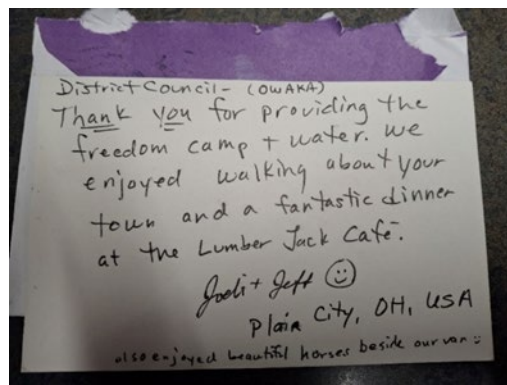 District Council - (OWAKA)
Thank you for providing the
freedom camp + water. we
enjoyed walking about your
town and a fantastic dinner
at the Lumber Jack Café.
Jodi + Jeff
Plain City, OH, USA
also enjoyed beautiful horses beside our van :)